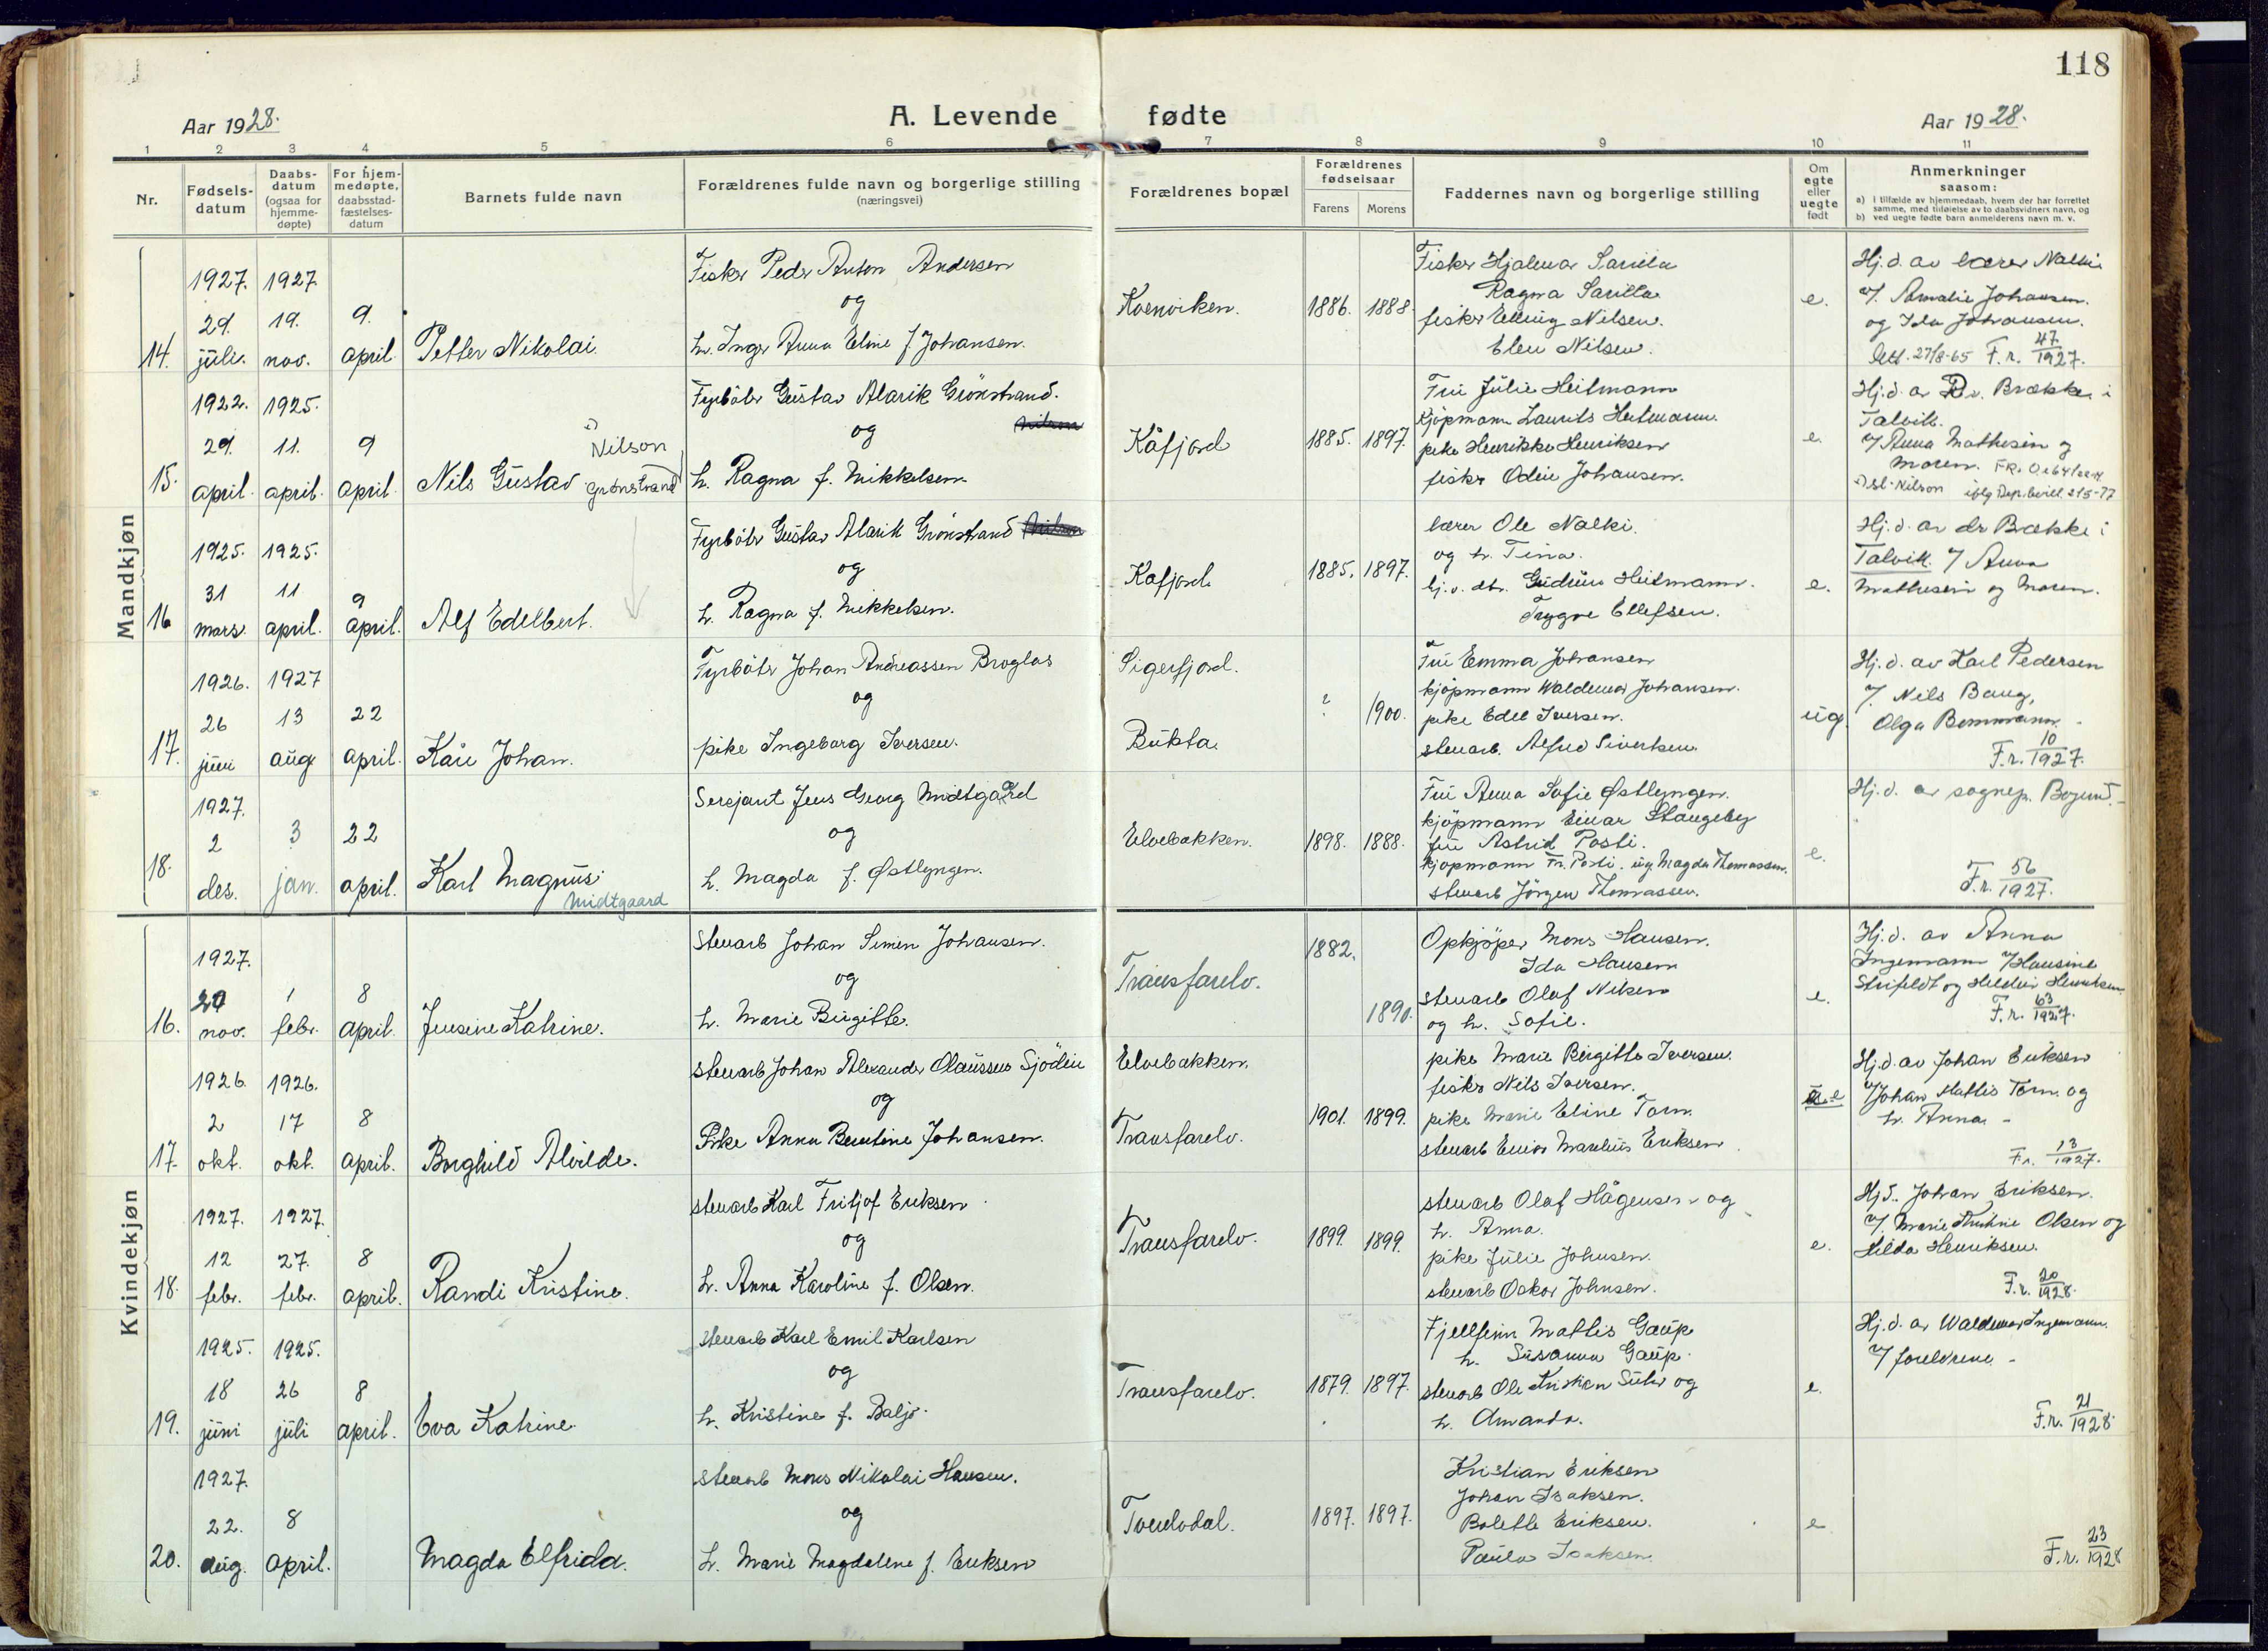 118
Aar 1928.
A. Levende fødte
Aar 1928.
1 2 3 4 5 6 7 8 9 10 11
Nr.
Fødsels-
datum
Daabs-
datum
(ogsaa for
hjemme-
døpte)
For hjem-
medøpte,
daabsstad-
fæstelses-
datum
Barnets fulde navn
Forældrenes fulde navn og borgerlige stilling
(næringsvei)
Forældrenes bopæl
Forældrenes
fødselsaar
Farens Morens
Faddernes navn og borgerlige stilling
Om
egte
eller
uegte
født
Anmerkninger
saasom:
a) i tilfælde av hjemmedaab, hvem der har forrettet
samme, med tilføielse av to daabsvidners navn, og
b) ved uegte fødte barn anmelderens navn m. v.
Mandkjøn
14.
1927. 29. juli.
1927 19. nov.
9. april
Petter Nikolai.
Fisker Peder Anton Andersen
og
h. Inger Anna Eline f. Johansen.
Kvenviken.
1886. 1888.
Fisker Hjalmar Sarilla
Ragna Sarilla
fisker Elling Nilsen.
Elen Nilsen.
e.
Hj.d. av lærer Nalki
v/ Amalie Johansen.
og Ida Johansen.
Att. 27/8-65 F.r. 47/1927.
15.
1922. 29. april.
1925. 11. april.
9 april
Nils Gustav Grønstrand
Nilson
Fyrbøter Gustav Alarik Grönstrand.
og
h. Ragna f. Mikkelsen.
Kåfjord
1885. 1897.
Fru Julie Heitmann
Kjøpmann Laurits Heitmann.
pike Henrikke Henriksen
fisker Odin Johansen.
e.
Hj.d. av Dr. Brække i
Talvik.
v/ Anna Mathisen og
moren.
16
1925. 31 mars.
1925. 11 april.
9 april.
Alf Edelbert.
Fyrbøter Gustav Alarik Grönstrand
og
h. Ragna f. Mikkelsen.
Kåfjord
1885. 1897.
lærer Ole Nalki.
og h. Tina.
hj.v. dtr. Gudrun Heitmann.
Trygve Ellefsen.
e.
Hj.d. av dr Brække i
Talvik v/ Anna
Mathisen og Moren.
17.
1926. 26 juni
1927 13 aug
22 april.
Kåre Johan.
Fyrbøter Johan Andreassen Broglas
og
pike Ingeborg Iversen.
Sigerfjord.
Bukta.
? 1900.
Fru Emma Johansen
kjøpmann Waldemar Johansen.
pike Edel Iversen.
stenarb. Alfred Sivertsen.
ug.
Hj.d. av Karl Pedersen
v/ Nils Baug,
Olga Bommann.
F.r. 10/1927.
18.
1927. 2 des.
3 jan.
22 april.
Karl Magnus
Midtgaard
Sersjant Jens Georg Midtgaard
og
h. Magda f. Østlyngen.
Elvebakken.
1898. 1888.
Fru Anna Sofie Østlyngen.
kjøpmann Einar Stangeby
fru Astrid Posti.
kjøpmann Fr. Posti. ug. Magda Thomassen.
stenarb Jörgen Thomassen.
e.
Hj.d. av sognep.
F.r. 56/1927.
Kvindekjøn
16.
1927. 20 nov.
1 febr.
8 april
Jensine Katrine.
stenarb Johan Simon Johansen.
og
h. Marie Birgitte.
Transfarelv.
1882. 1890.
Opkjøper Mons Hansen.
Ida Hansen
stenarb Olaf Nilsen
og h. Sofie.
e.
Hj.d. av Anna
Ingemann v/ Hansine
Strifeldt og
F.r. 63/1927.
17.
1926. 2 okt.
1926. 17 okt.
8 april.
Borghild Alvilde.
stenarb Johan Alexander Olaussen Sjödin
og
Pike Anna Berntine Johansen.
Elvebakken.
Transfarelv.
1901. 1899.
pike Marie Birgitte Iversen.
fisker Nils Iversen.
pike Marie Eline Torn.
stenarb Einar Marelius Eriksen
Hj.d. av Johan Eriksen
v/ Johan Mattis Torn. og
h. Anna -
F.r. 13/1927.
18.
1927. 12 febr.
1927. 27. febr.
8 april.
Randi Kristine.
stenarb Karl Fritjof Eriksen
og
h. Anna Karoline f. Olsen.
Transfarelv.
1899. 1899.
stenarb Olaf Hågensen og
h. Anna.
pike Julie Johnsen.
stenarb Oskar Johnsen.
e.
Hj.d. Johan Eriksen.
v/ Marie Olsen og
Hilda Henriksen.
F.r. 20/1928.
19.
1925. 18 juni
1925. 26 juli
8 april.
Eva Katrine.
stenarb Karl Emil Karlsen
og
h. Kristine f. Baljo.
Transfarelv.
1879. 1897.
Fjellfinn Mattis Gaup
h. Susanna Gaup.
stenarb Ole Kristian Suhr og
h. Amanda.
e.
Hj.d. av Waldemar Ingemann.
v/ foreldrene -
F.r. 21/1928.
20.
1927. 22. aug.
8 april.
Magda Elfrida.
stenarb Mons Nikolai Hansen.
og
h. Marie Magdalene f. Eriksen
Tverelvdal.
1897. 1897.
Kristian Eriksen
Johan Isaksen.
Bolette Eriksen.
Paula Isaksen.
e
F.r. 23/1928